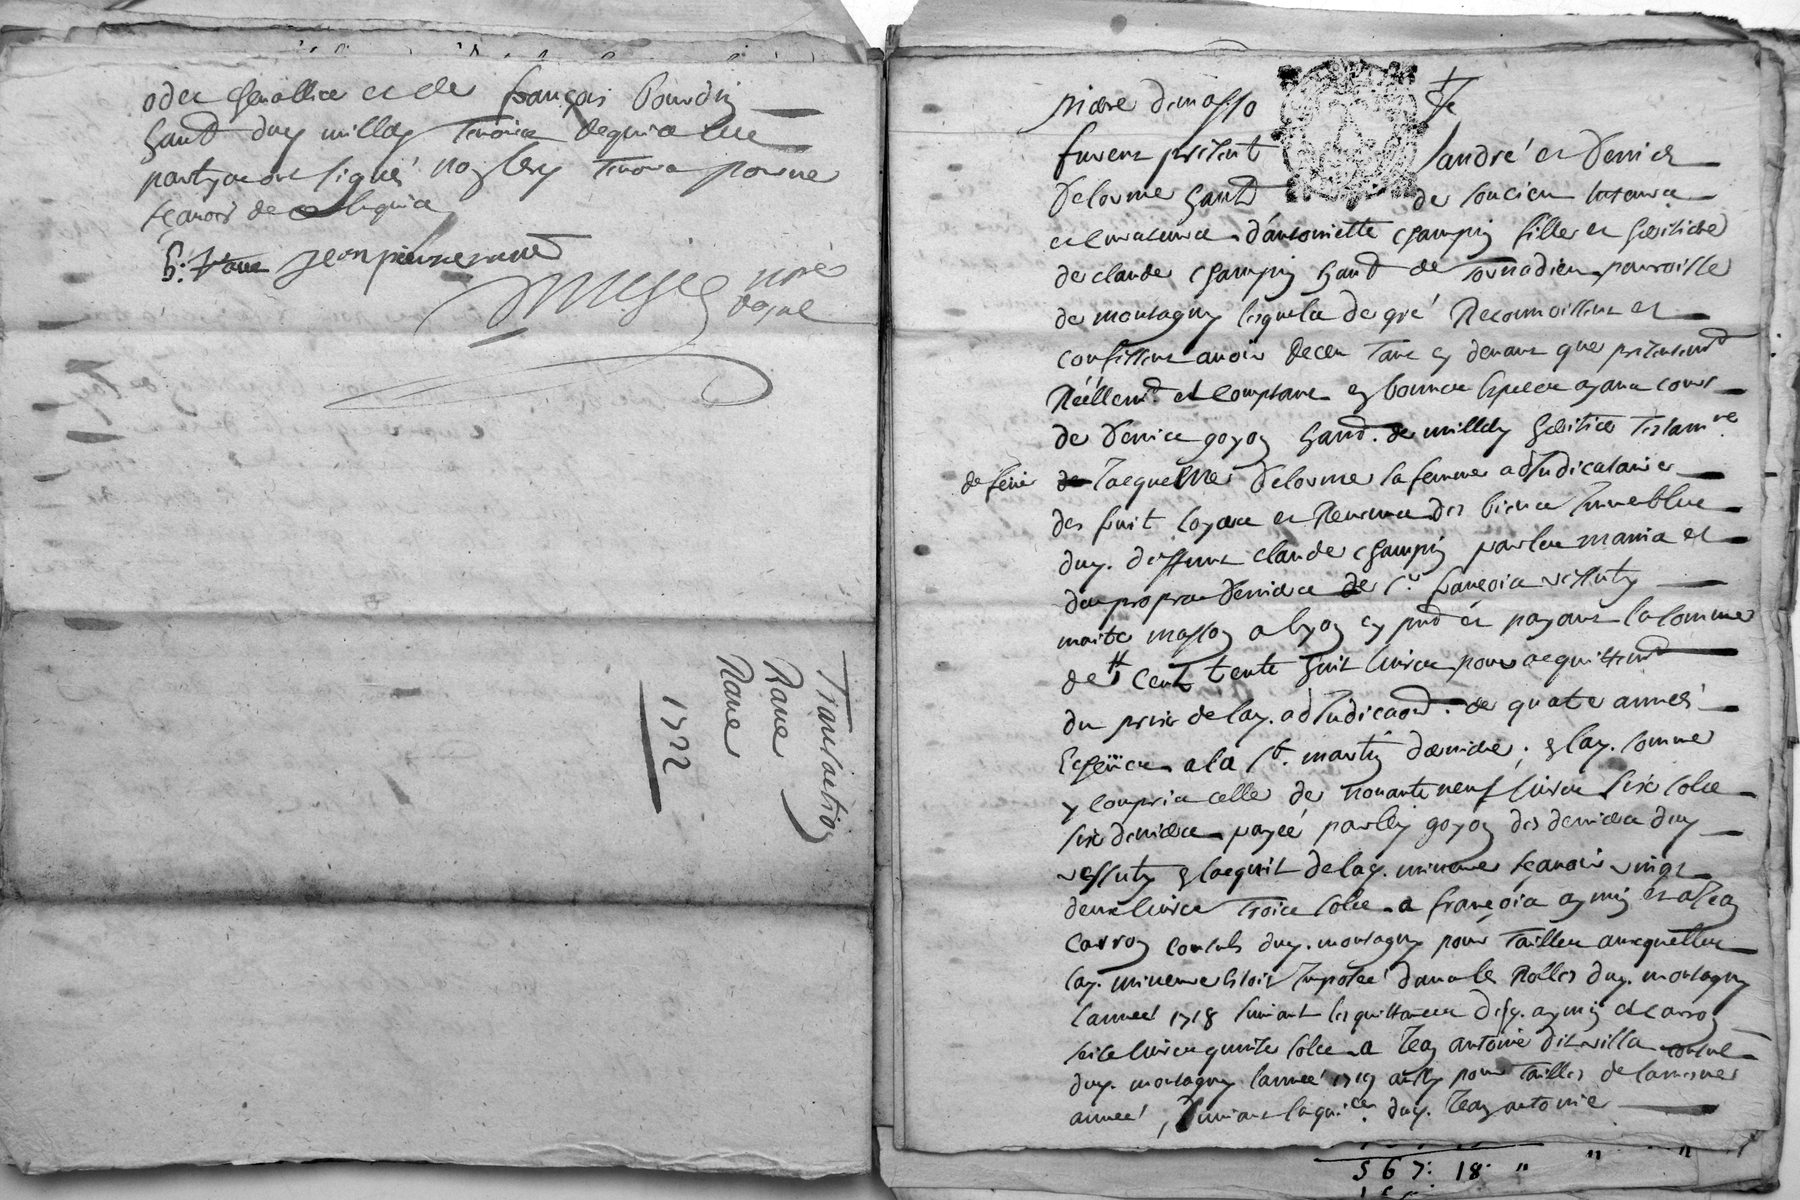 oder Chenollier et de françois Bourdin
habt duy milly temoins requis les
partyes ont signé non lesy temoin pour ne
sçavoir de ce enquis
jean pierre
nore
royal
Transaction
Rave
Rave
1722
pierre dumasso
furent présent andré et Denice
Delorme habt de soucieu tuteur
et curateur d'antoinette champin fille et heritiere
de claude champin habt de tornadieu parroisse
de montagny lesquels de gré reconnoissent et
confessent avoir receu tant cy devant que presentemt
réellemt et comptant en bonnes especes ayant cours
de Denice goyon habt de milly heritier testamre
de feue jacquesme Delorme sa femme adjudicataire
des fruit loyers et revenus des biens immeubles
duy deffunt claude champin par les mains et
du propre deniers de sr françois vessuty
maitre masson a lyon cy pnt et payant la somme
de cent tente huit livres pour acquittemt
du prix de lay adjudicaon de quatre années
echeues a la st martin derniere, en lay somme
y compris celle de nonante neuf livres six sols
six deniers payée par ley goyon des deniers duy
vessuty en lacquit de lay mineure sçavoir vingt
deux livres trois sols a françois aymin et a jean
carron consuls duy montagny pour tailles auxquelles
lay mineure estoit imposée dans le rolles duy montagny
lannée 1718 suivant les quittances desy aymin et carron
seize livres quinze sols a jean antoine dit villa consul
duy montagny lannée 1719 aussy pour tailles de la mesme
année, suivant la quice duy jean antoine
567: 18 " " "